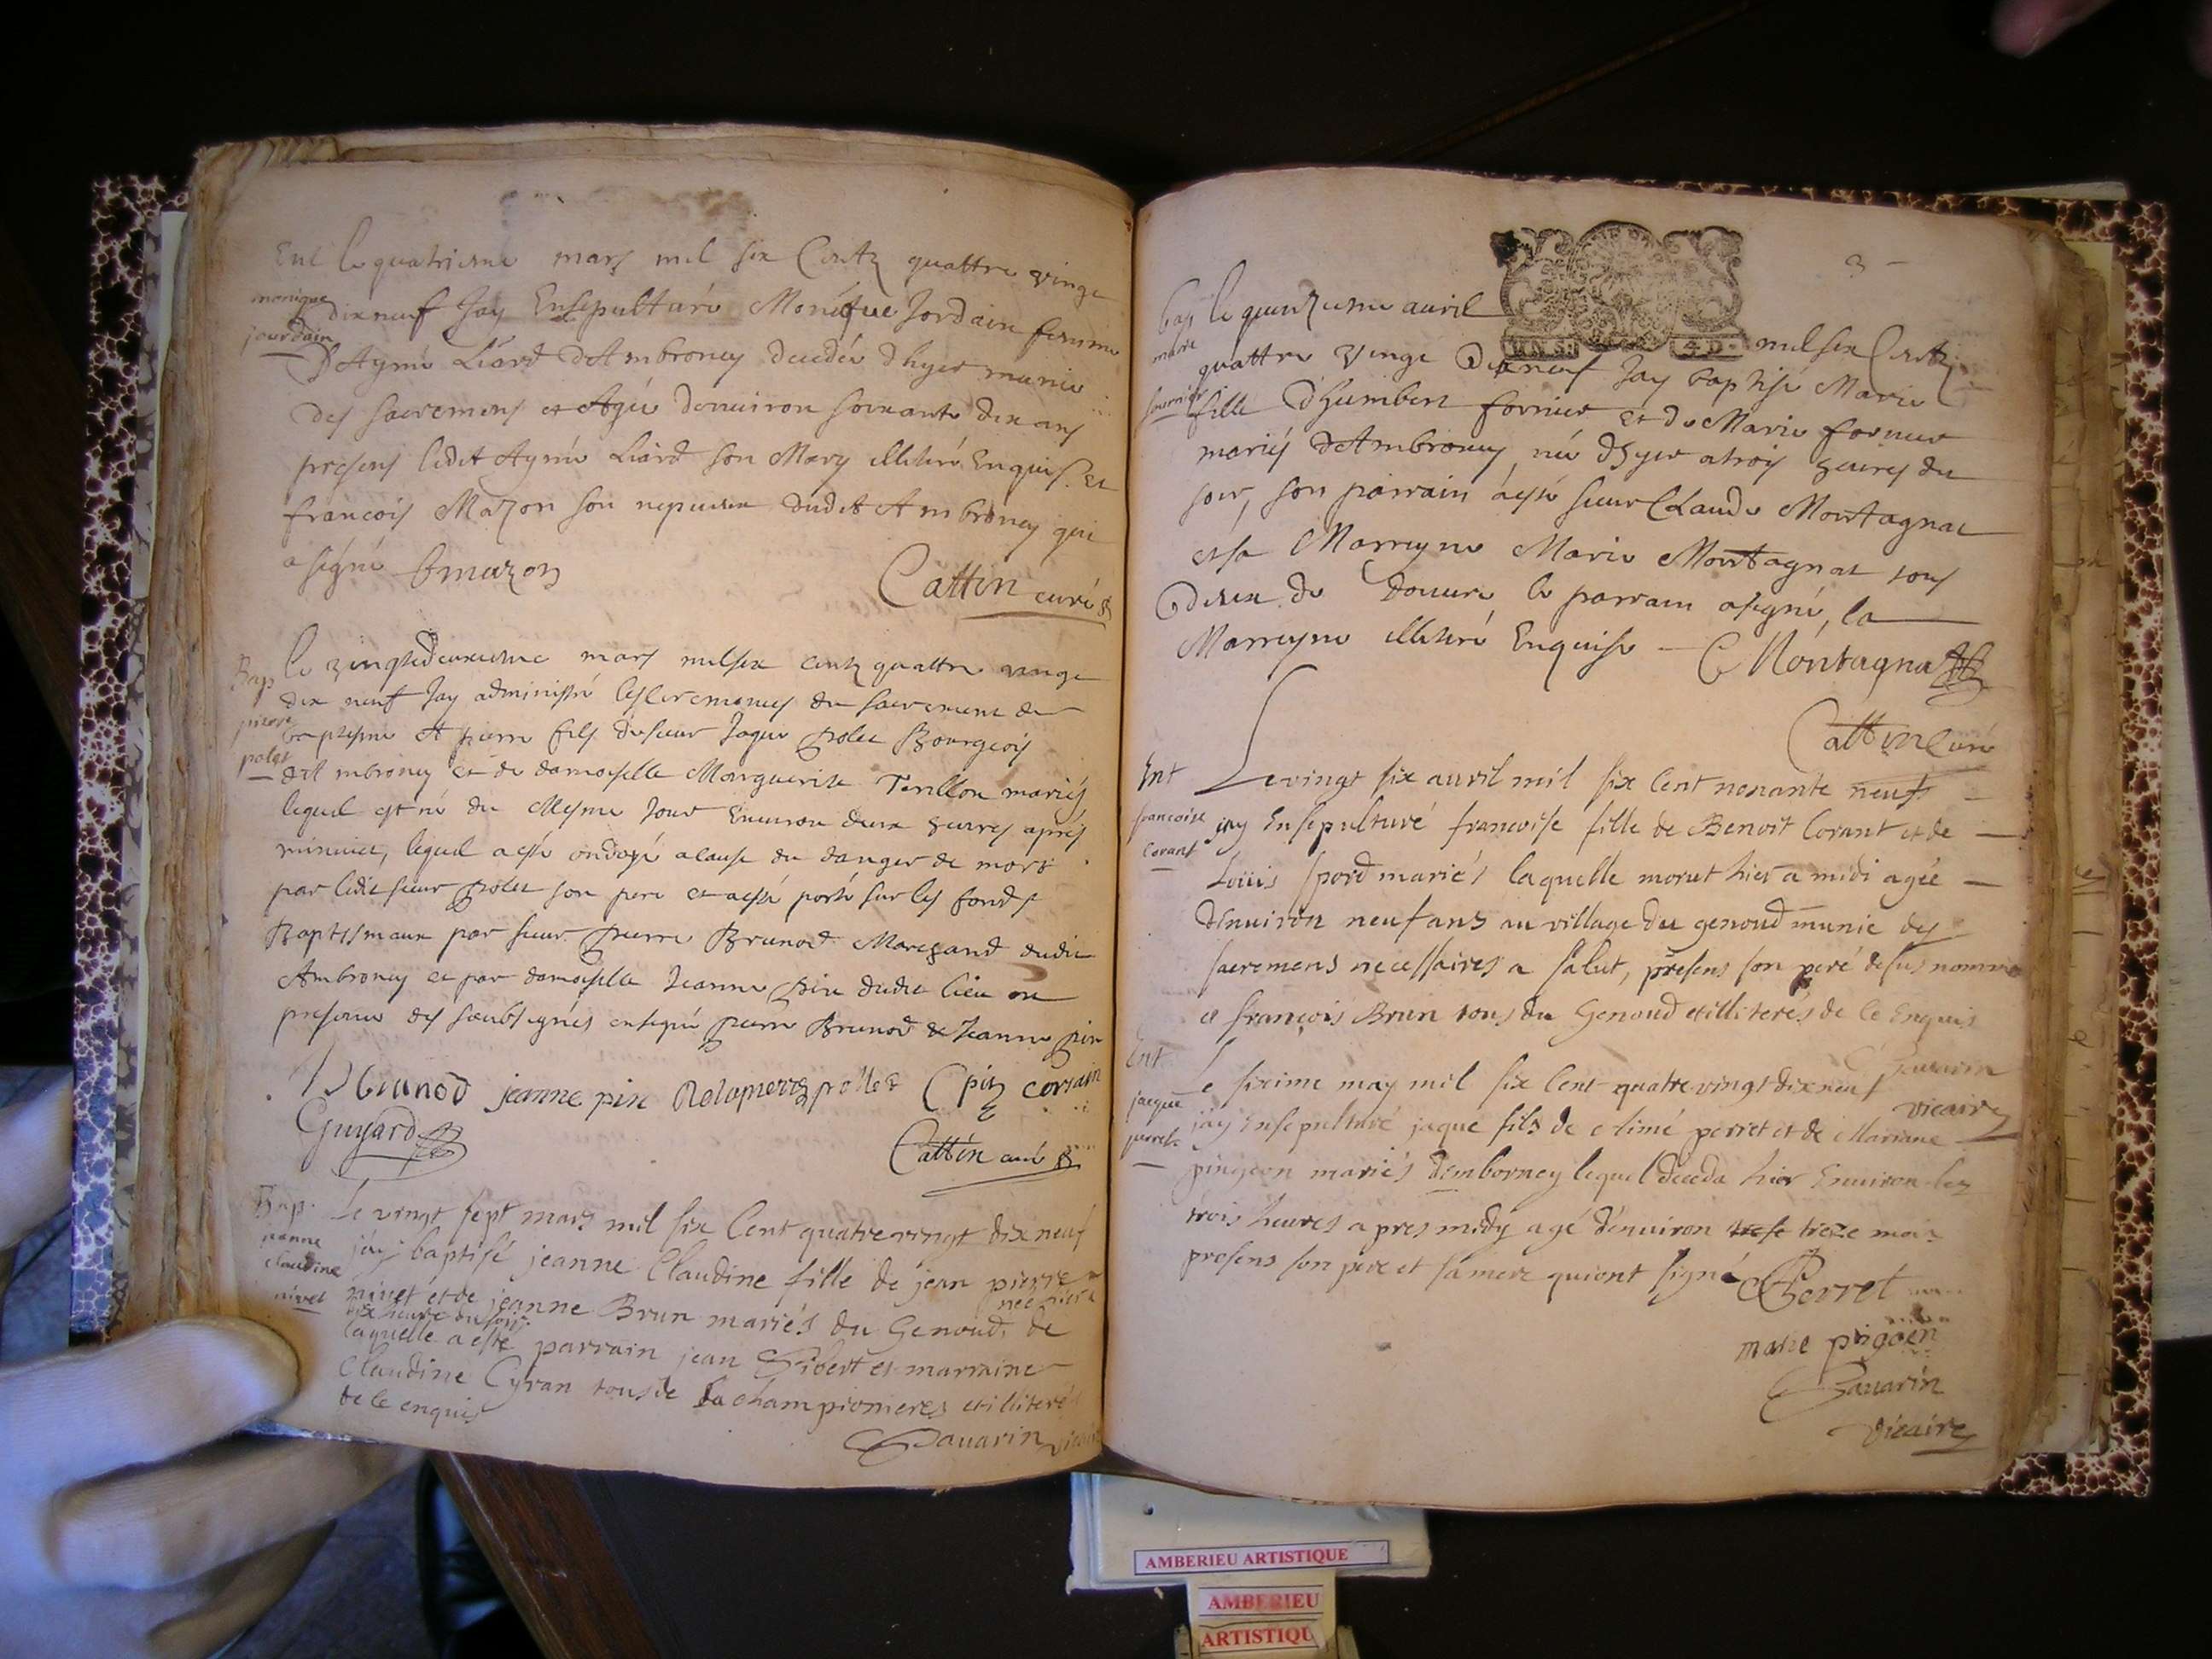 Ent le quatriesme mars mil six Centz quattre vingt
monique
jourdain
dixneuf Jay Ensepulturé Monique Jordain femme
D'Aymé Liard D'Ambroney decedée d'hyer munie
des sacremens et Agée denuiron soixante dix ans
presens ledit Aymé Liard son Mary illiteré Enquis. Et
francois Mazon son nepueux dudit Ambroney qui
a signé fmazon
Cattin curé
Bap
pierre
polet
le vingtedeuxiesme mars milsix centz quattre vingt
dix neuf Jay administré les ceremonies du sacrement de
baptesme A pierre fils de sieur Jaque polet Bourgeois
d'Ambroney et de damoiselle Marguerite Tenllon mariés
lequel est né du Mesme Jour Enuiron deux heures après
minuict, lequel a esté ondoyé a cause du danger de mort
par ledit sieur polet son pere et a esté porté sur les fonds
Baptismaux par sieur pierre Brunod Marchand dudit
Ambroney et par damoiselle Jeanne pin dudit lieu en
presence des soubsignés enseque pierre Brunod & Jeanne pin
P Brunod jeanne pin pollet
Guyard
Cattin curé
Bap.
jeanne
claudine
nivet
Le vingt sept mars mil six Cent quatre vingt dix neuf
jay baptisé jeanne Claudine fille de jean pierre
nivet et de jeanne Brun mariés du Genoud, de
née hier a
dix heure du soir.
laquelle a esté parrain jean Sibert et marraine
Claudine Cyran tous de la championieres et illiterés
de ce enquis
Sauarin vicaire
3
bap
marie
fournier
le quinziesme auril
UN S. 4 D.
mil six Centz
quattre vingt Dixneuf Jay baptisé Marie
fille d'humbert fornier et de Marie fornier
mariés d'Ambroney, née dhyer a trois heures du
soir, son parrain a esté sieur Claude Montagnat
et sa Marreyne Marie Montagnat tous
deux de Douure le parrain a signé, la
Marreyne illiteré Enquise - C Montagnat
Cattin Curé
Ent
francoise
Corant
Le vingt six auril mil six Cent nonante neuf
jay Ensepulturé francoise fille de Benoit Corant et de
Loüis spord mariés laquelle morut hier a midi agée
d'Enuiron neuf ans au village du genoud munie des
sacremens necessaires a salut, presens son peré desus nommé
et françois Brun tous du Genoud et illiterés de ce Enquis
Sauarin
vicaire
Ent
jacque
perret
Le sixime may mil six Cent quatre vingt dix neuf
jay Ensepulturé jaque fils de Aimé perret et de Mariane
pingeon mariés dembornay lequel deceda hier Enuiron les
trois heures apres midy agé denuiron treize mois
presens son pere et sa mere qui ont signé Perret
marie pigoen
Sauarin
vicaire
AMBERIEU ARTISTIQUE
AMBERIEU
ARTISTIQU